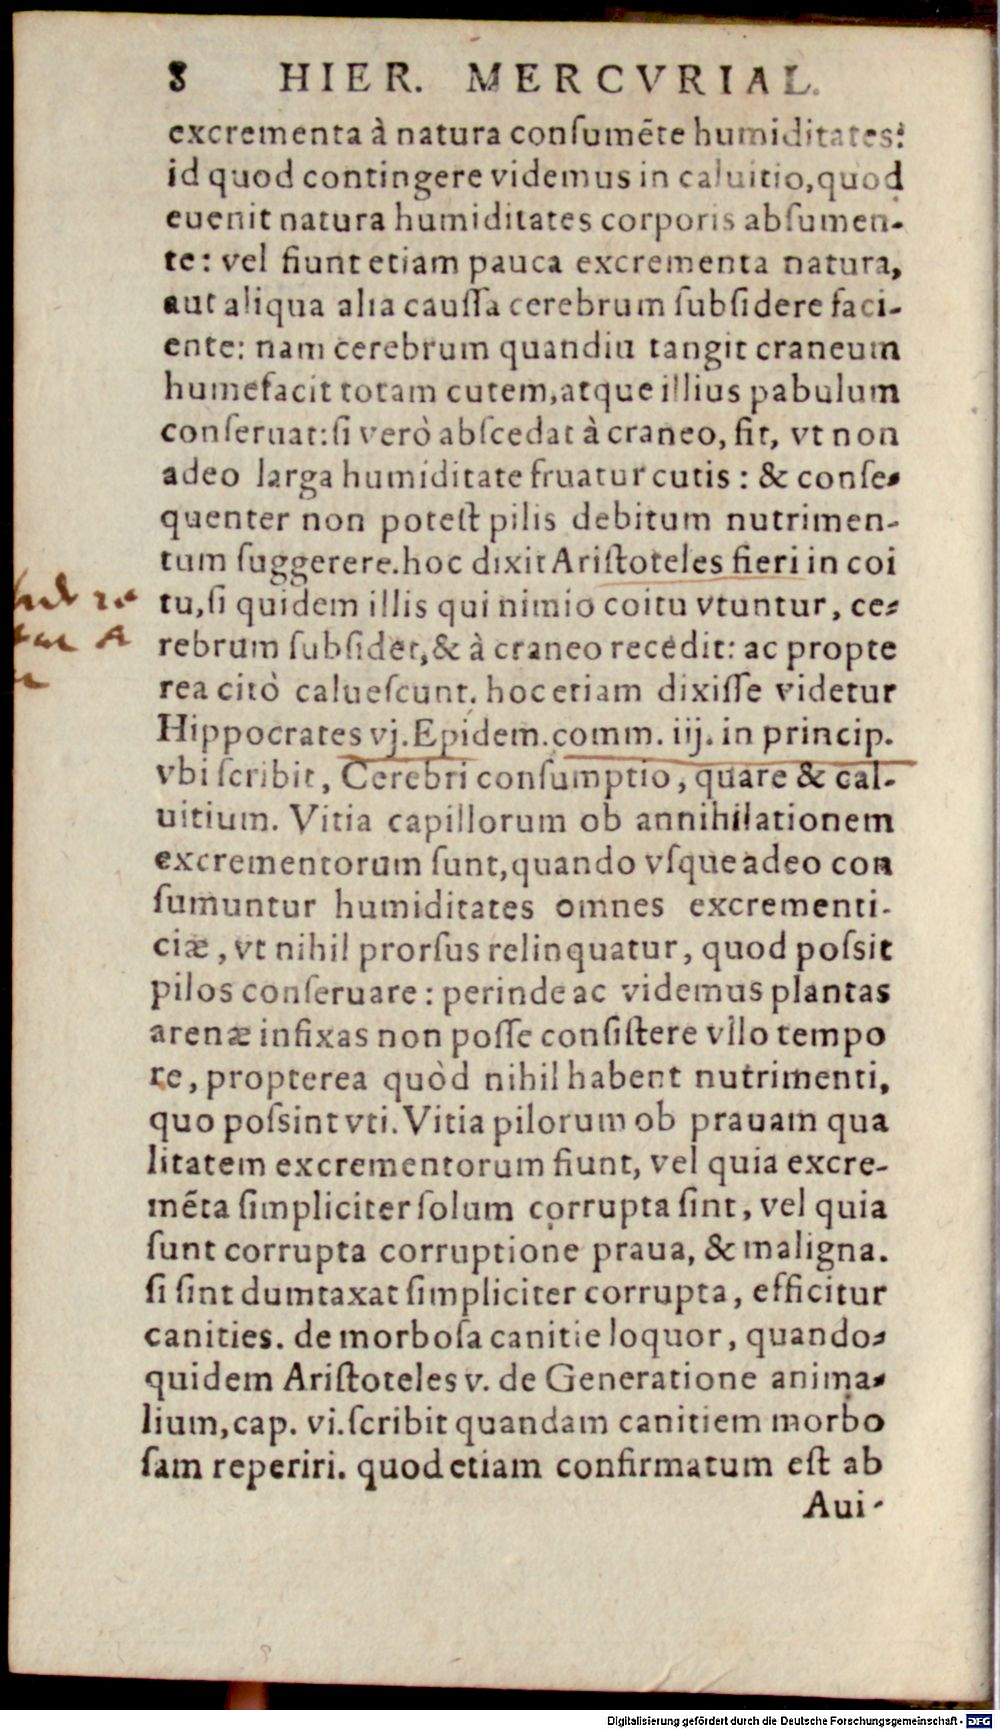 8 HIER. MERCVRIAL.
excrementa à natura conſumēte humiditates:
id quod contingere videmus in caluitio, quod
euenit natura humiditates corporis abſumen-
te: vel fiunt etiam pauca excrementa natura,
aut aliqua alia cauſſa cerebrum ſubſidere faci-
ente: nam cerebrum quandiu tangit craneum
humefacit totam cutem, atque illius pabulum
conſeruat: ſi verò abſcedat à craneo, fit, vt non
adeo larga humiditate fruatur cutis: & conſe-
quenter non poteſt pilis debitum nutrimen-
tum ſuggerere. hoc dixit Ariſtoteles fieri in coi
tu, ſi quidem illis qui nimio coitu vtuntur, ce-
rebrum ſubſidet, & à craneo recedit: ac propte
rea citò calueſcunt. hoc etiam dixiſſe videtur
Hippocrates vj. Epidem. comm. iij. in princip.
vbi ſcribit, Cerebri conſumptio, quare & cal-
uitium. Vitia capillorum ob annihilationem
excrementorum ſunt, quando vſque adeo con
ſumuntur humiditates omnes excrementi-
ciæ, vt nihil prorſus relinquatur, quod poſsit
pilos conſeruare: perinde ac videmus plantas
arenæ infixas non poſſe conſiſtere vllo tempo
re, propterea quòd nihil habent nutrimenti,
quo poſsint vti. Vitia pilorum ob prauam qua
litatem excrementorum fiunt, vel quia excre-
mēta ſimpliciter ſolum corrupta ſint, vel quia
ſunt corrupta corruptione praua, & maligna.
ſi ſint dumtaxat ſimpliciter corrupta, efficitur
canities. de morboſa canitie loquor, quando-
quidem Ariſtoteles v. de Generatione anima-
lium, cap. vi. ſcribit quandam canitiem morbo
ſam reperiri. quod etiam confirmatum eſt ab
Aui-
Digitalisierung gefördert durch die Deutsche Forschungsgemeinschaft - DFG